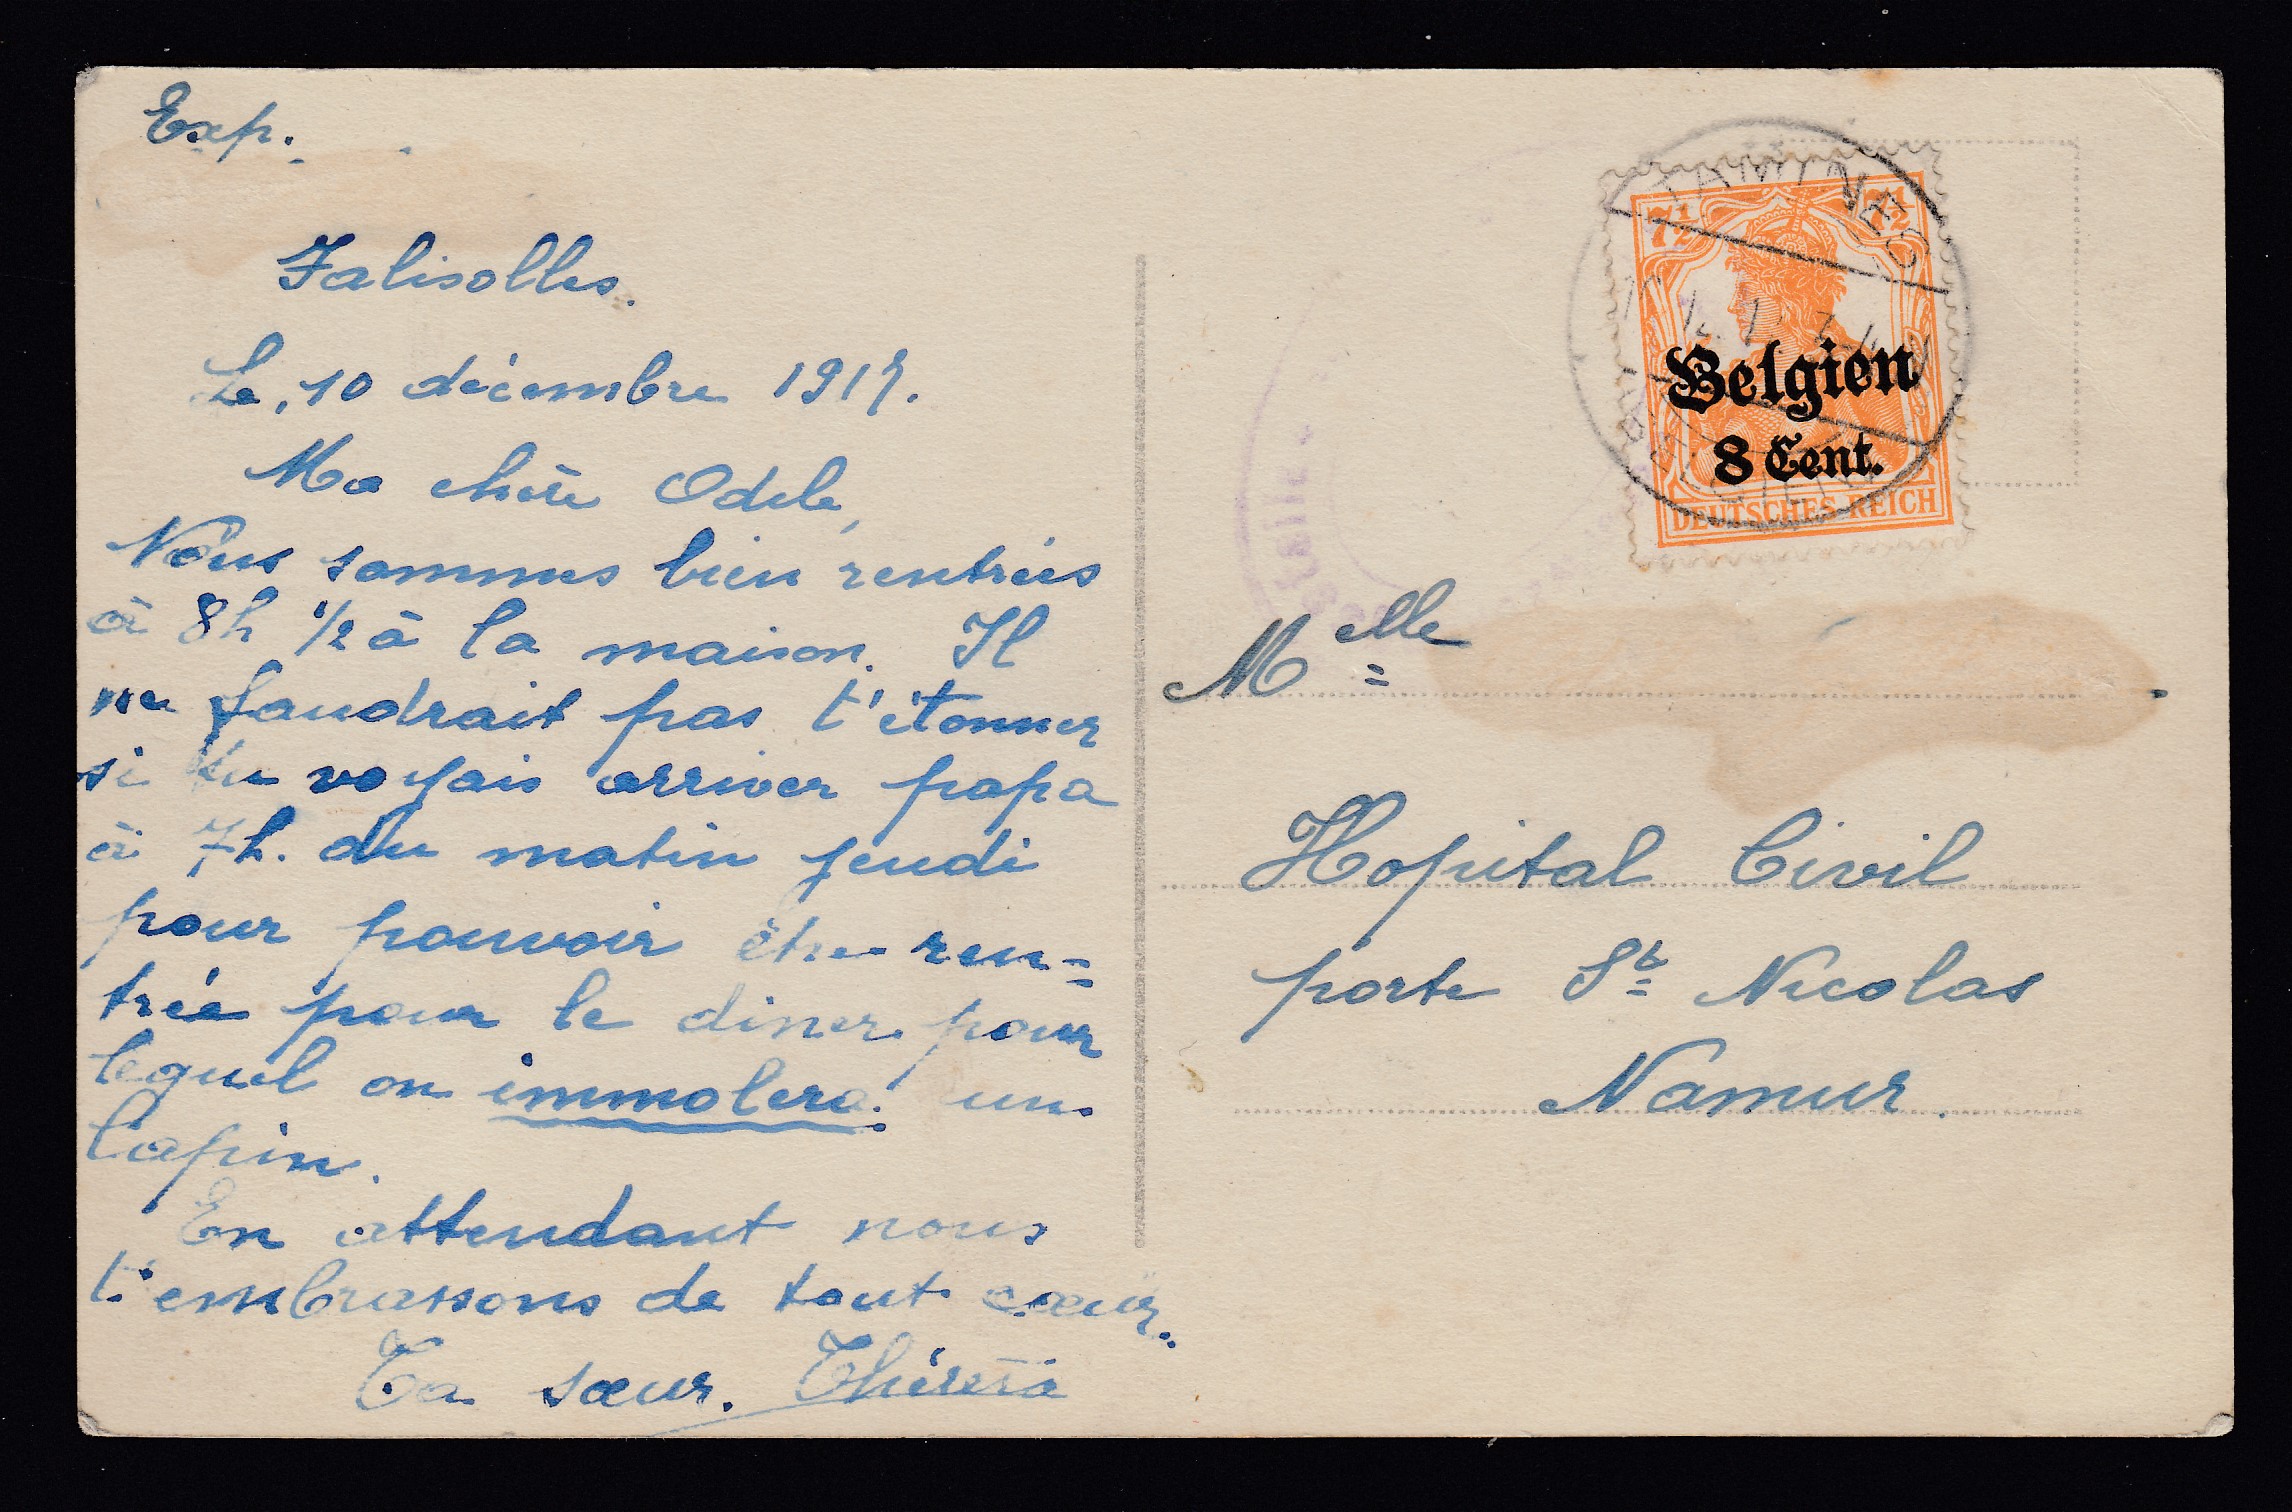 Exp.
Falisolles.
Le, 10 décembre 1917.
Ma chère Odile,
Nous sommes bien rentrées
à 8h 1/2 à la maison. Il
ne faudrait pas t'étonner
si tu voyais arriver papa
à 7h. du matin jeudi
pour pouvoir être ren=
trée pour le diner pour
lequel on immolera un
lapin.
En attendant nous
t'embrassons de tout cœur.
Ta sœur. Thérèse
TAMINES
(BELGIEN)
7½ 7½
Belgien
8 Cent.
DEUTSCHES REICH
Melle
Hopital Civil
porte St Nicolas
Namur.